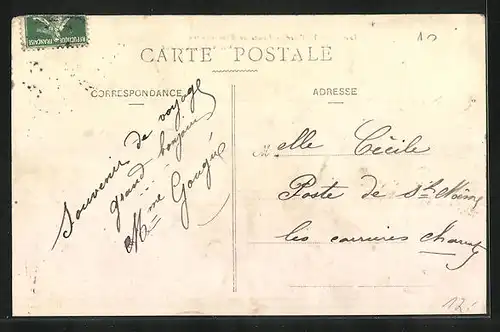 RÉPUBLIQUE FRANÇAISE
CARTE POSTALE
CORRESPONDANCE
ADRESSE
Souvenir de voyage
grand bonjour
Mme Gougé
Melle Cécile
Poste de St
les carrières
12.-